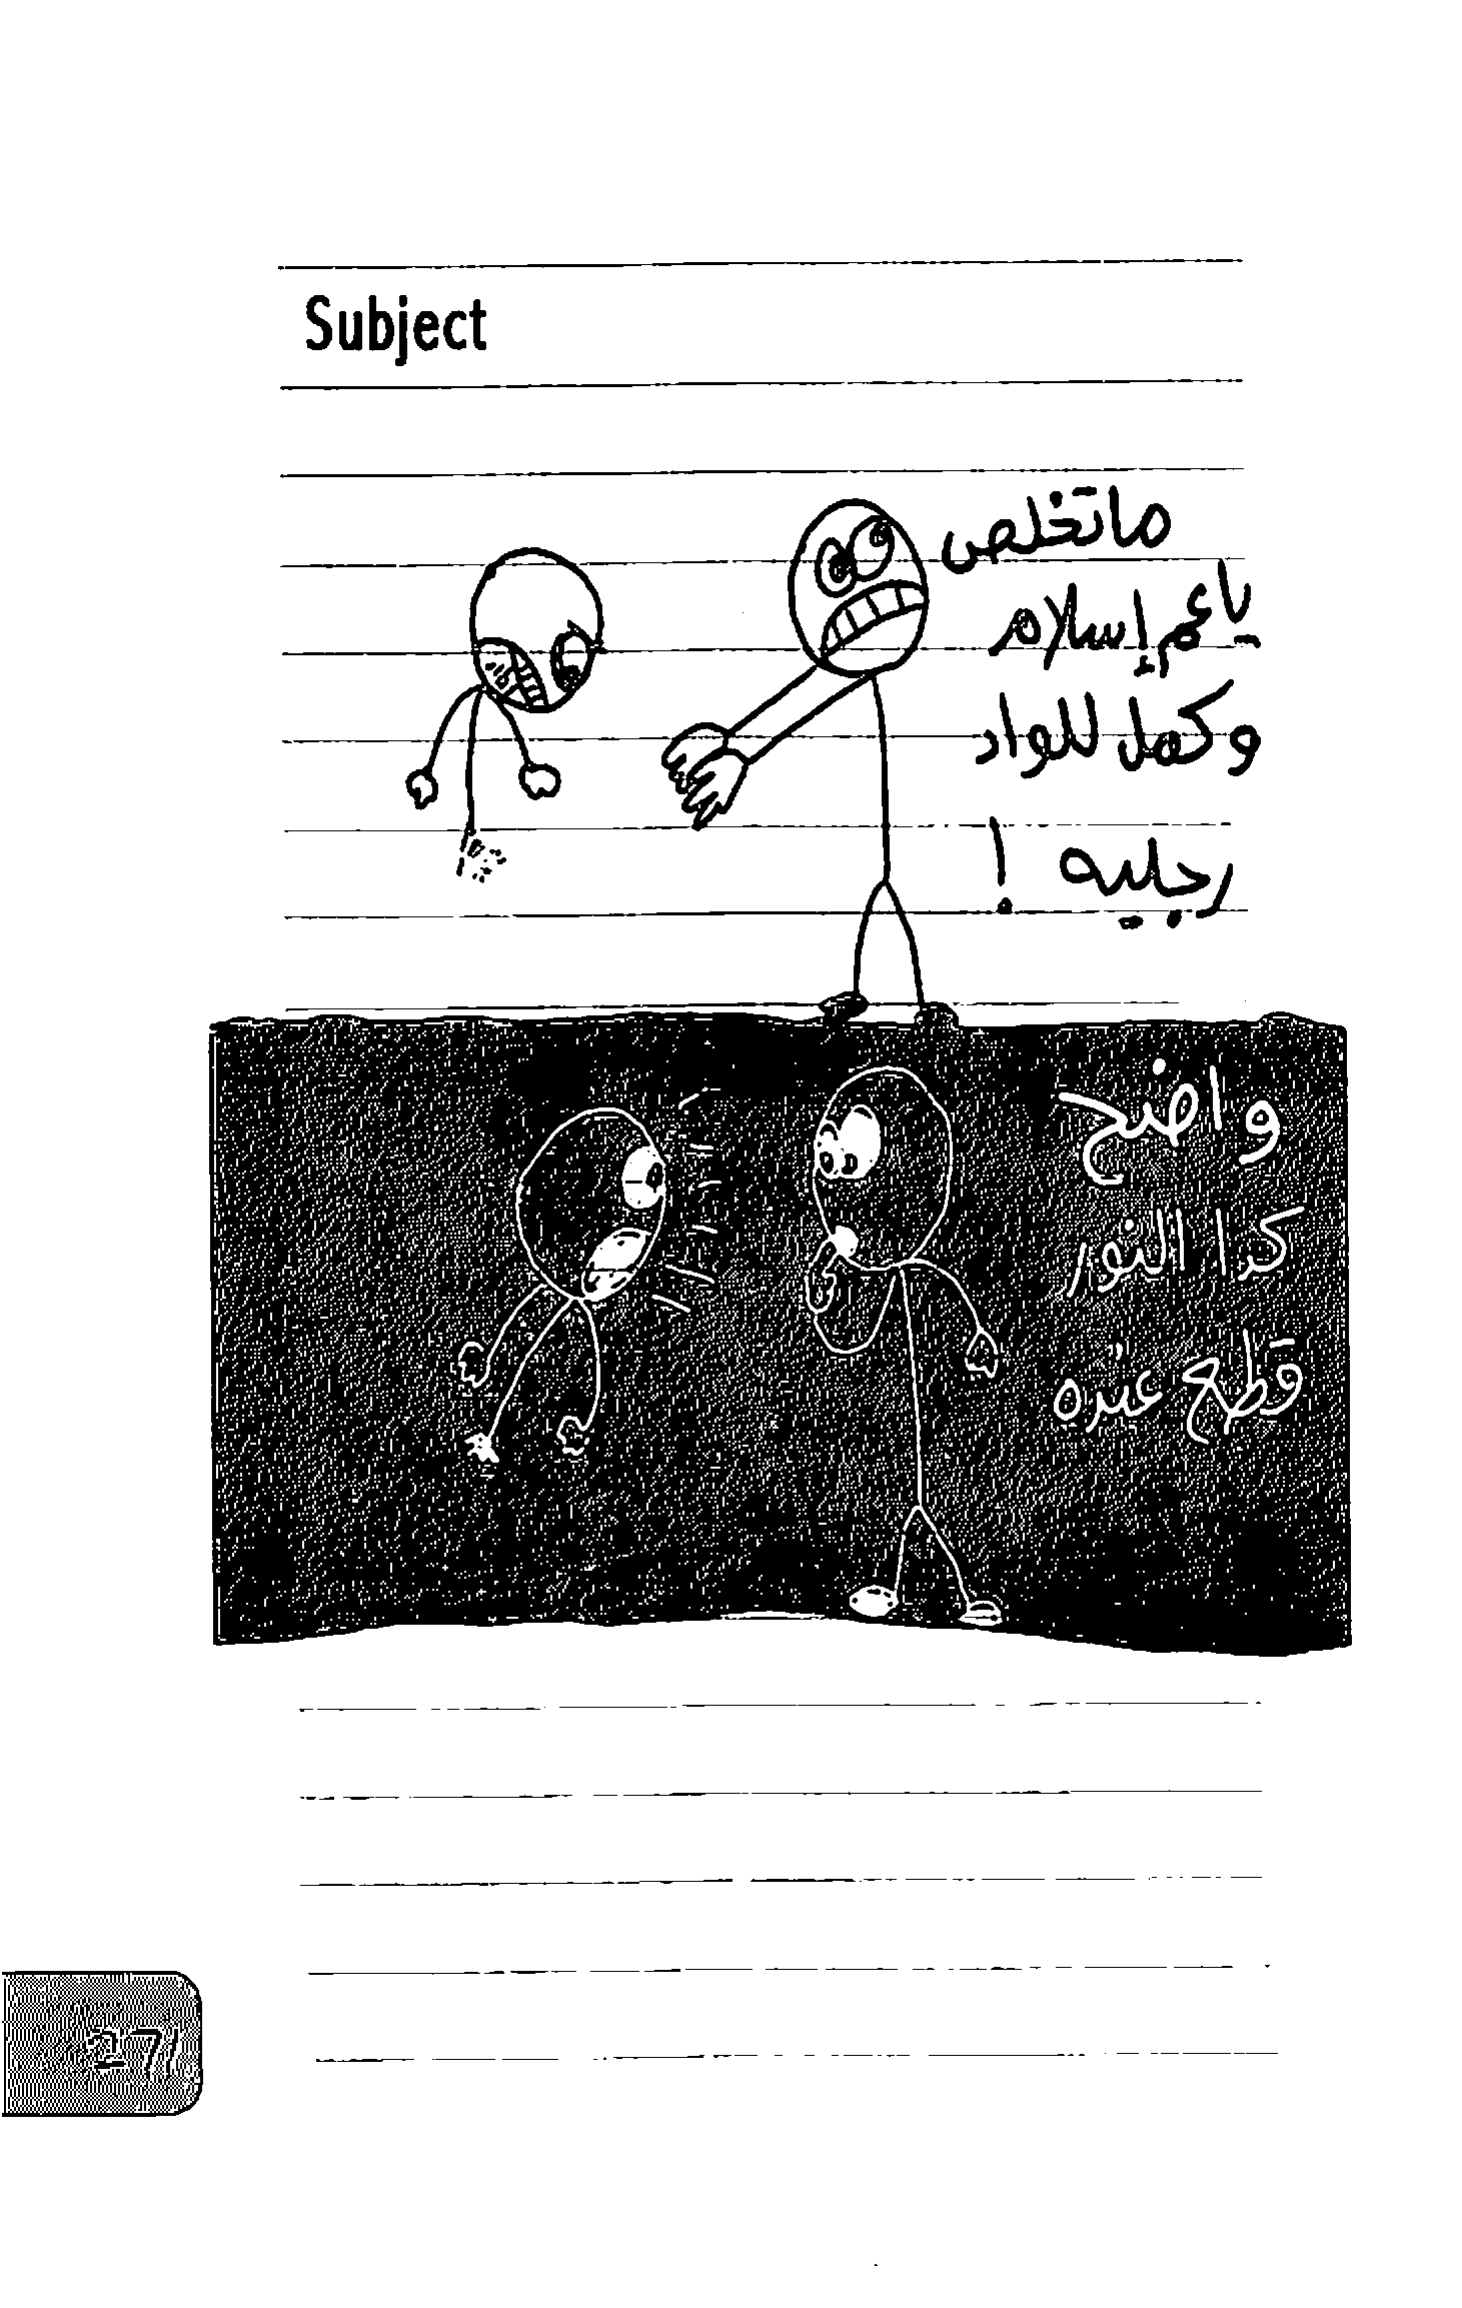 Subject
ماتخلص
ياعم إسلام
وكمل للواد
رجليه !
واضح
كدا النور
قطع عنده
27